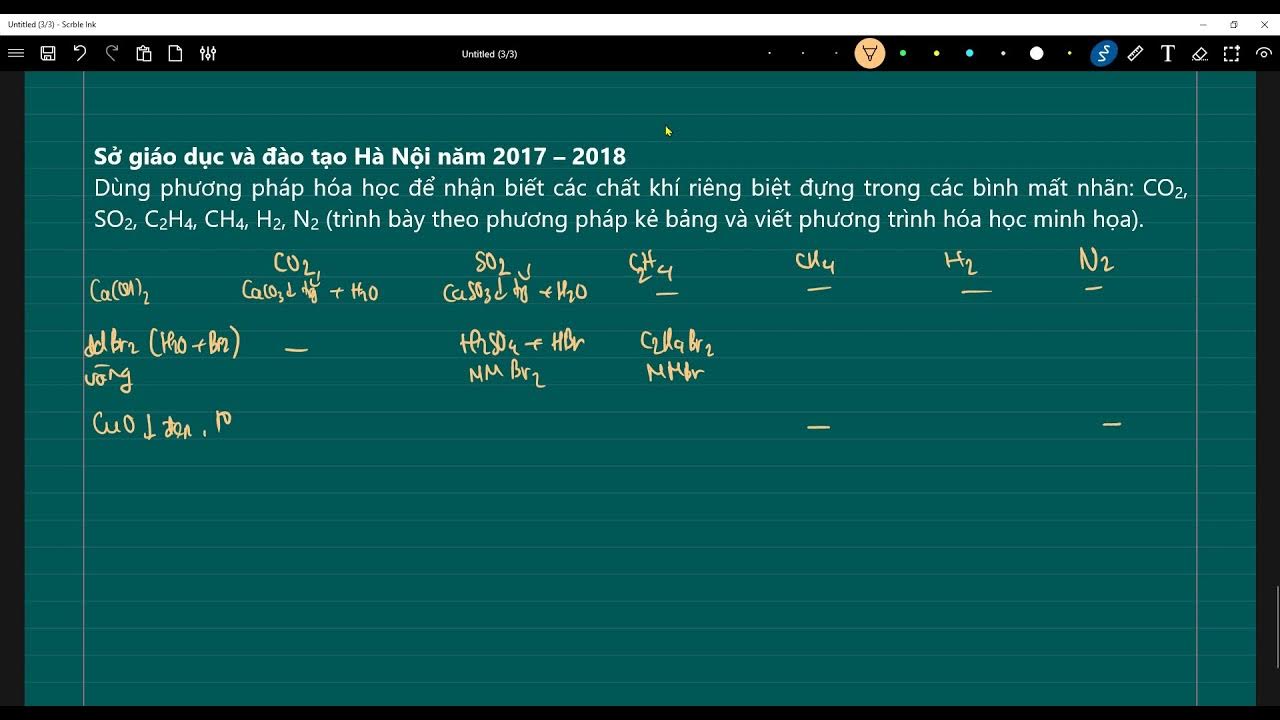 Untitled (3/3) - Scrble Ink
Untitled (3/3)
T
Sở giáo dục và đào tạo Hà Nội năm 2017 – 2018
Dùng phương pháp hóa học để nhận biết các chất khí riêng biệt đựng trong các bình mất nhãn: CO₂,
SO₂, C₂H₄, CH₄, H₂, N₂ (trình bày theo phương pháp kẻ bảng và viết phương trình hóa học minh họa).
CO₂ SO₂ C₂H₄ CH₄ H₂ N₂
Ca(OH)₂ CaCO₃↓ + H₂O CaSO₃↓ + H₂O — — — —
dd Br₂ (H₂O + Br₂) — H₂SO₄ + HBr C₂H₄Br₂
vàng MM Br₂ MMBr
CuO↓ đen, t° — —